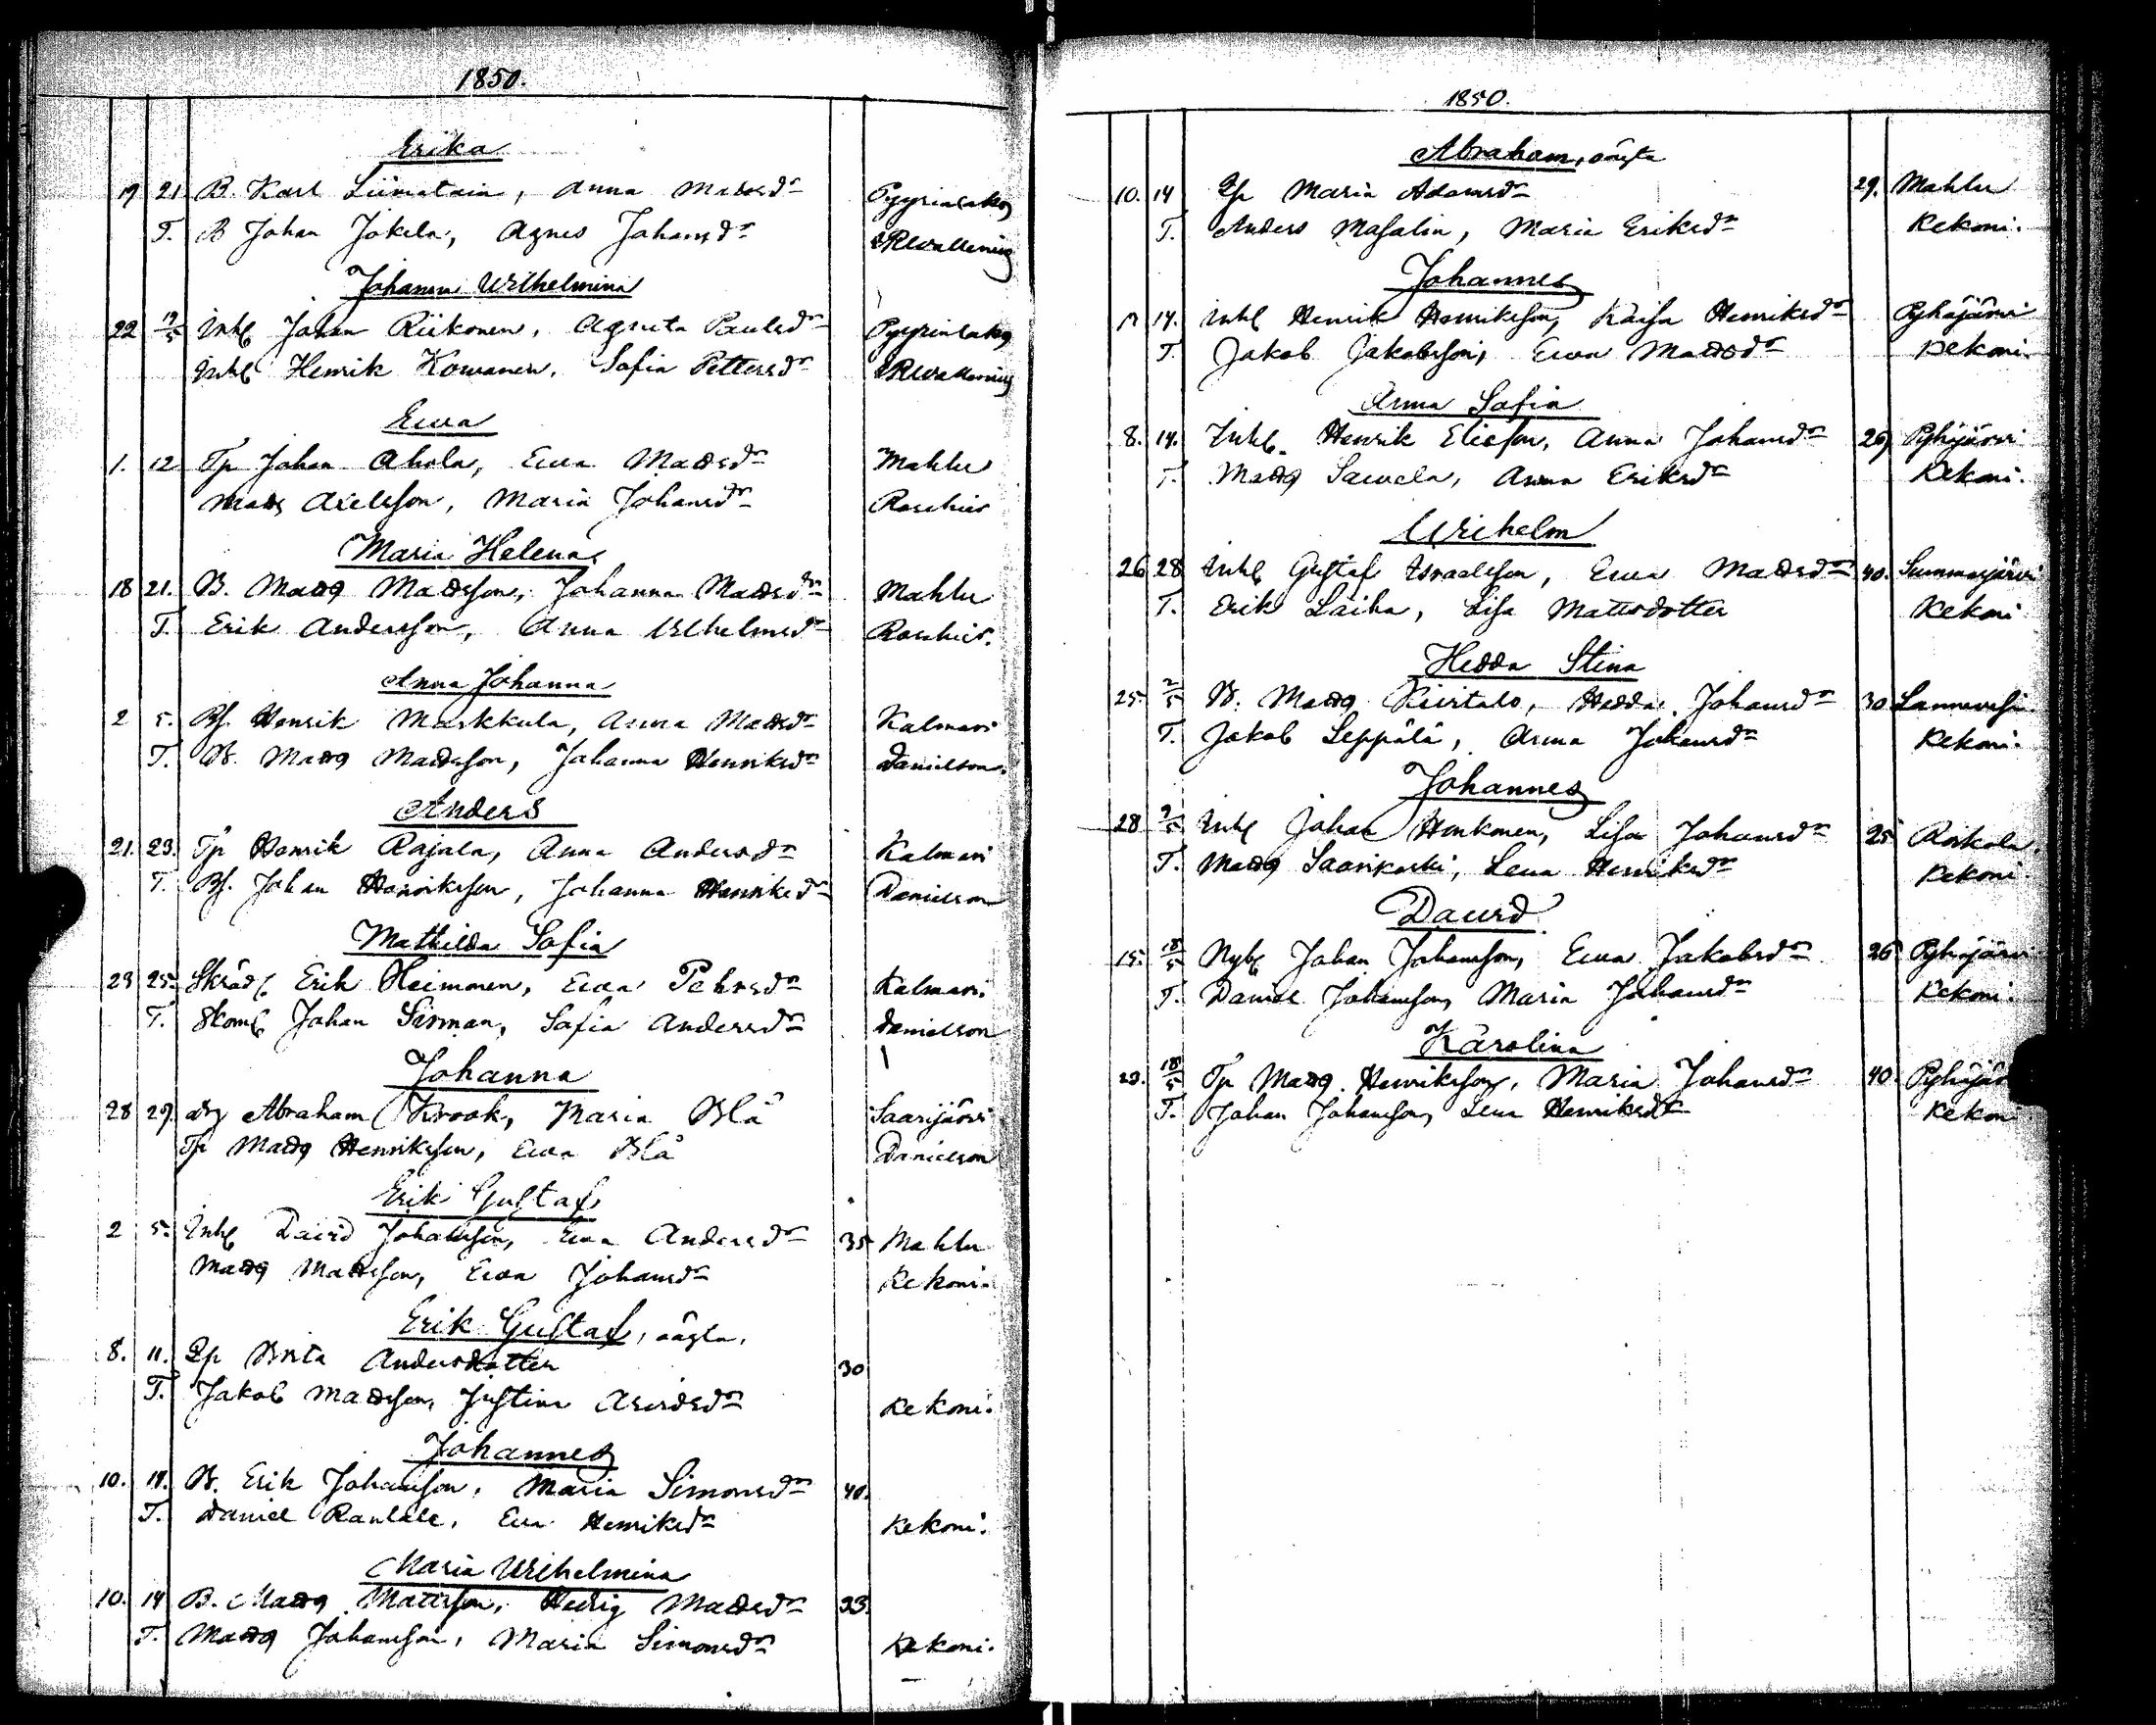 1850.
Erika
19 21 B. Karl Liimatain, Anna Matsdr Pyyrinlaks
T. B Johan Jokela, Agnes Johansdr Wallenius
Johanna Wilhelmina
22 12/5 Inh Johan Riikonen, Agneta Paulsdr Pyyrinlaks
Inh Henrik Kowanen, Sofia Pettersdr Wallenius
Ewa
1. 12 Tp Johan Ahola, Ewa Matsdr Mahlu
Mats Axelsson, Maria Johansdr Roschier
Maria Helena
18 21. B. Mats Matsson, Johanna Matsdr Mahlu
T. Erik Andersson, Anna Wilhelmsdr Roschier.
Anna Johanna
2 5. Bs. Henrik Markkula, Anna Matsdr Kalmari
T. B. Mats Matsson, Johanna Henriksdr Danielson.
Anders
21. 23. Tp Henrik Rajala, Anna Andersdr Kalmari
T. Bs. Johan Henriksson, Johanna Henriksdr Danielson
Mathilda Sofia
23 25. Skräd. Erik Heimonen, Ewa Pehrsdr Kalmari.
T. Skom Johan Sirman, Sofia Andersdr Danielson
Johanna
28 29. Abraham Krook, Maria Blå Saarijärvi
Tp Mats Henriksson, Ewa Blå Danielson
Erik Gustaf
2 5. Inh David Johansson, Ewa Andersdr 35 Mahlu
Mats Matsson, Ewa Johansdr Kekoni.
Erik Gustaf, oägta.
8. 11. Qp Brita Andersdotter 30
T. Jakob Matsson, Justina Kekoni.
Johannes
10. 14. B. Erik Johansson, Maria Simonsdr 40.
T. Daniel Rantala, Ewa Henriksdr Kekoni.
Maria Wilhelmina
10. 14 B. Mats Mattsson, Hedvig Matsdr 33.
T. Mats Johansson, Maria Simonsdr Kekoni.
1850.
Abraham, oägta
10. 14 Qp Maria Adamsdr 29. Mahlu
T. Anders Masalin, Maria Eriksdr Kekoni.
Johannes
14. Inh Henrik Henriksson, Kaisa Henriksdr Pyhäjärvi
T. Jakob Jakobsson, Ewa Matsdr Kekoni.
Anna Sofia
8. 14. Inh. Henrik Eliesson, Anna Johansdr 29 Pyhäjärvi
T. Mats Sawela, Anna Eriksdr Kekoni.
Wilhelm
26 28 Inh Gustaf Israelsson, Ewa Matsdr 40. Summasjärvi
T. Erik Laiha, Lisa Mattsdotter Kekoni
Hedda Stina
25. 2/5 B. Mats Kiiritalo, Hedda Johansdr 30 Lannevesi.
T. Jakob Seppälä, Anna Johansdr Kekoni.
Johannes
28 2/5 Inh Johan Honkonen, Lisa Johansdr 25
T. Mats Saarikoski, Lena Henriksdr Kekoni.
David
15. 18/5 Nyb Johan Johansson, Ewa Jakobsdr 26 Pyhäjärvi
T. Daniel Johansson, Maria Johansdr Kekoni.
Karolina
18/5 Tp Mats Henriksson, Maria Johansdr 40. Pyhäjär
T. Johan Johansson, Lena Henriksdr Kekoni